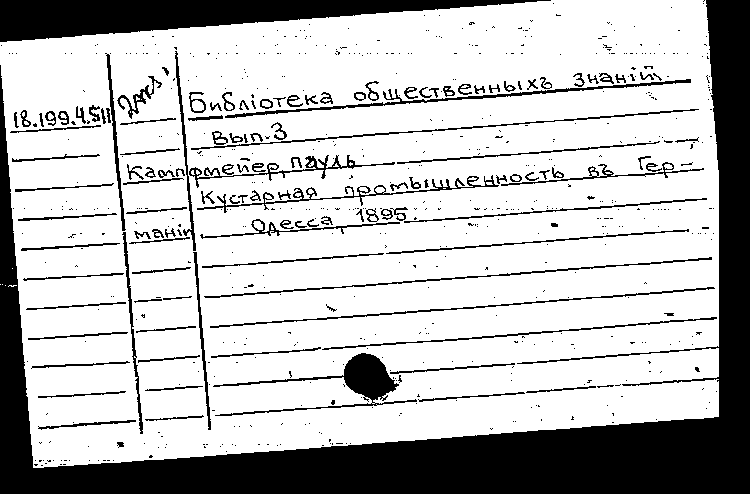 Библіотека общественныхъ знаній
18.199.4.511
Вып. 3
Кампфмейер, Пауль
Кустарная промышленность въ Гер-
маніи. Одесса, 1895.